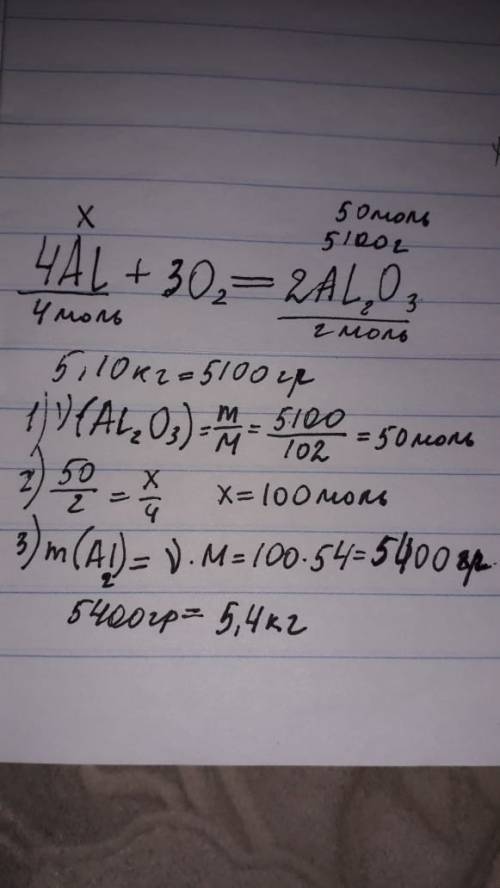 x 50 моль
5100г
4AL + 3O₂ = 2AL₂O₃
4 моль 2 моль
5,10 кг = 5100 гр
1) ν(AL₂O₃) = m/M = 5100/102 = 50 моль
2) 50/2 = x/4 x = 100 моль
3) m(Al₂) = ν · M = 100 · 54 = 5400 гр.
5400 гр = 5,4 кг